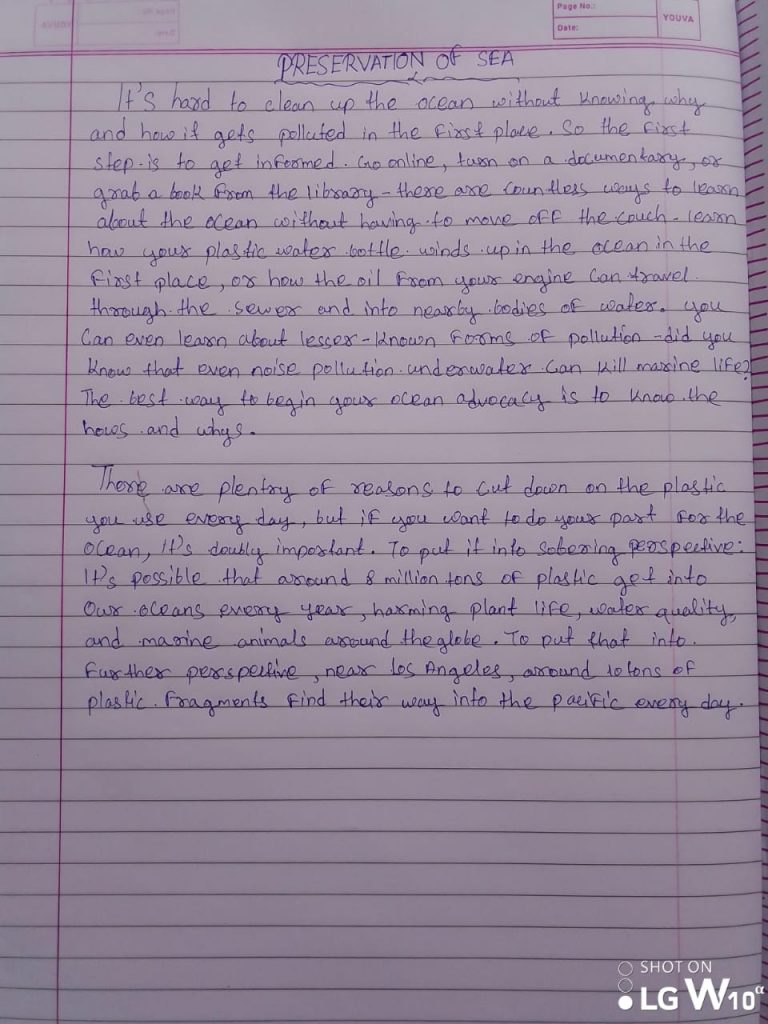 Page No.:
Date:
YOUVA
PRESERVATION OF SEA
It's hard to clean up the ocean without knowing why
and how it gets polluted in the first place. So the first
step is to get informed. Go online, turn on a documentary, or
grab a book from the library - there are countless ways to learn
about the ocean without having to move off the couch - learn
how your plastic water bottle winds up in the ocean in the
first place, or how the oil from your engine can travel
through the sewer and into nearby bodies of water. you
can even learn about lesser-known forms of pollution - did you
know that even noise pollution underwater can kill marine life?
The best way to begin your ocean advocacy is to know the
hows and whys.
There are plentry of reasons to cut down on the plastic
you use every day, but if you want to do your part for the
ocean, it's doubly important. To put it into sobering perspective:
It's possible that around 8 million tons of plastic get into
our oceans every year, harming plant life, water quality,
and marine animals around the globe. To put that into
further perspective, near Los Angeles, around 10 tons of
plastic fragments find their way into the pacific every day.
SHOT ON
LG W10α